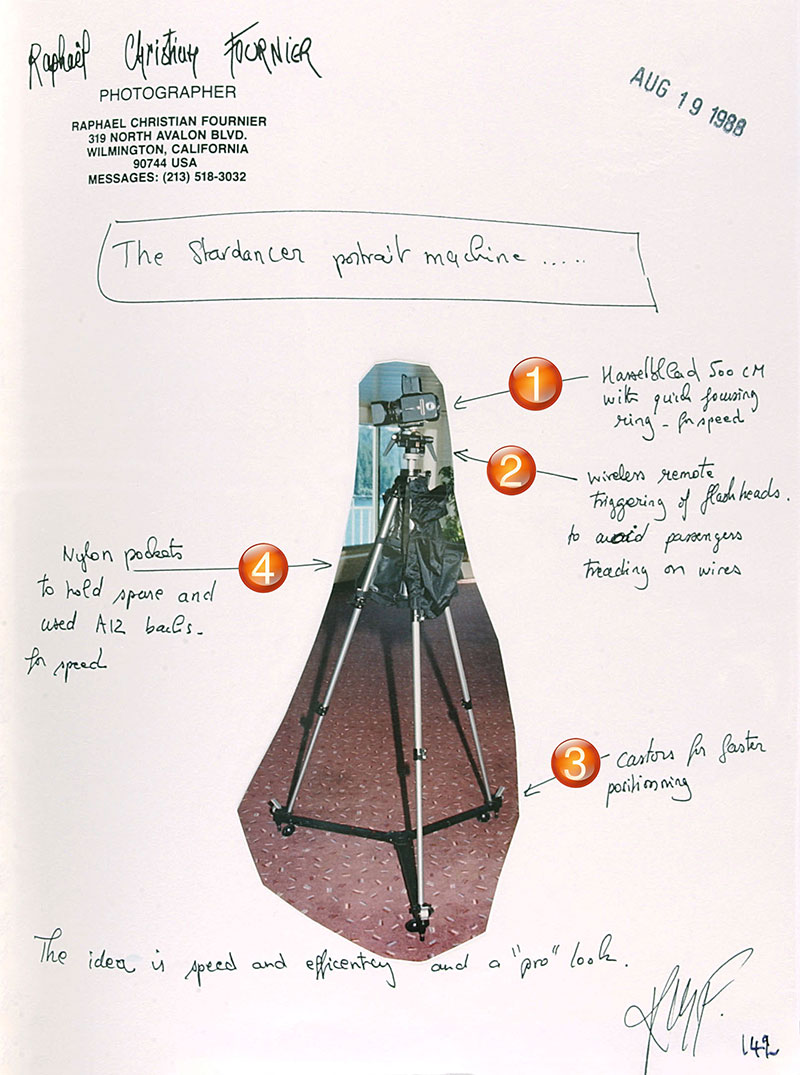 Raphaël Christian FOURNIER
PHOTOGRAPHER
RAPHAEL CHRISTIAN FOURNIER
319 NORTH AVALON BLVD.
WILMINGTON, CALIFORNIA
90744 USA
MESSAGES: (213) 518-3032
AUG 19 1988
The Stardancer portrait machine .....
1
Hasselblad 500 CM
with quick focusing
ring - for speed
2
wireless remote
triggering of flashheads.
to avoid passengers
treading on wires
4
Nylon pockets
to hold spare and
used A12 backs -
for speed
3
castors for faster
positionning
The idea is speed and efficentcy and a "pro" look.
149